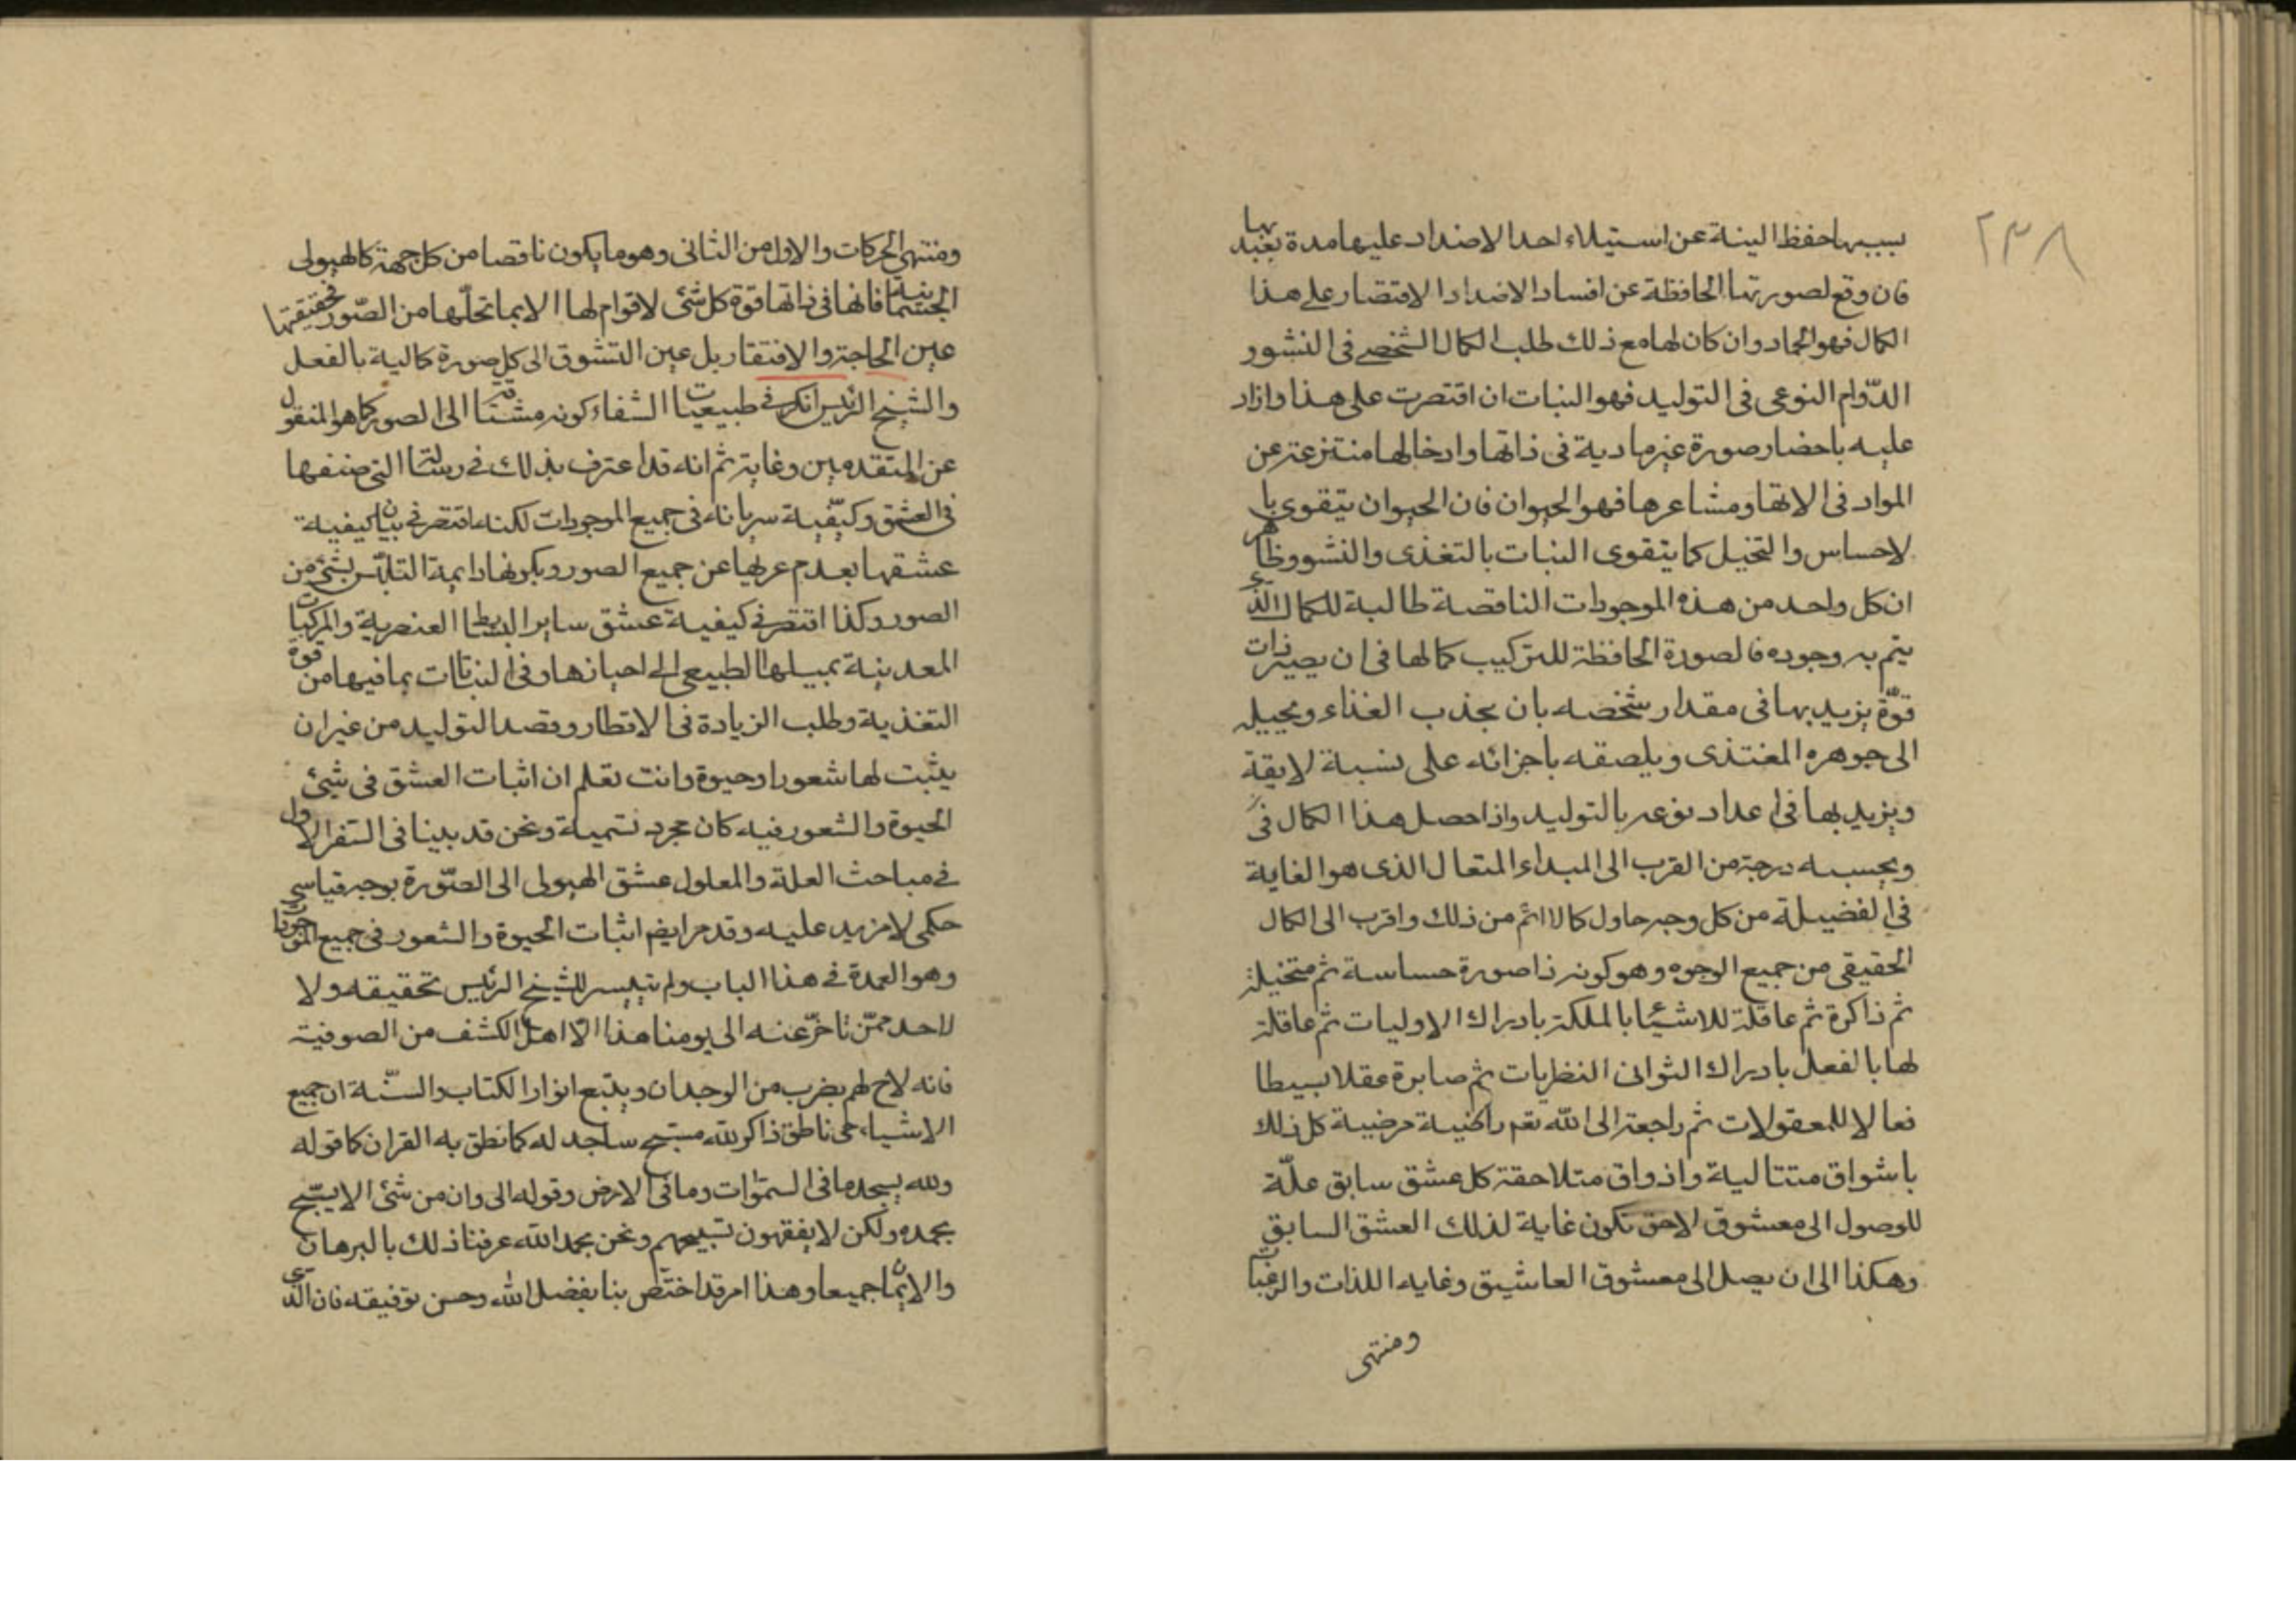 ٢٣٨
بسببها حفظ البنية عن استيلاء احد الاضداد عليها مدة بعيد بها
فان وقع لصورتها الحافظة عن افساد الاضداد الاقتصار على هذا
الكمال فهو الجماد وان كان لها مع ذلك طلب الكمال الشخصى فى النشو و
الدّوام النوعى فى التوليد فهو النبات ان اقتصرت على هذا وان زاد
عليه باحضار صورة غير مادية فى ذاتها وادخالها منتزعة عن
المواد فى الاتها ومشاعرها فهو الحيوان فان الحيوان يتقوى با
لاحساس والتخيل كما يتقوى النبات بالتغذى والنشو وظاهر
ان كل واحد من هذه الموجودات الناقصة طالبة للكمال الذى
يتم به وجوده فالصورة الحافظة للتركيب كمالها فى ان يصير ذات
قوّة يزيد بها فى مقدار شخصه بان يجذب الغذاء ويحيله
الى جوهره المغتذى ويلصقه باجزائه على نسبة لايقة
ويزيد بها فى اعداد نوعه بالتوليد واذا حصل هذا الكمال فى
وبحسبه درجة من القرب الى المبداء المتعال الذى هو الغاية
فى الفضيلة من كل وجه حاول كمالا اتم من ذلك واقرب الى الكمال
الحقيقى من جميع الوجوه وهو كونه ذا صورة حساسة ثم متخيلة
ثم ذاكرة ثم عاقلة للاشياء بالملكة بادراك الاوليات ثم عاقلة
لها بالفعل بادراك الثوانى النظريات ثم صايرة عقلا بسيطا
فعالا للمعقولات ثم راجعة الى الله تعم راضية مرضية كل ذلك
باشواق متتالية واذواق متلاحقة كل عشق سابق علّة
للوصول الى معشوق لاحق تكون غاية لذلك العشق السابق
وهكذا الى ان يصل الى معشوق العاشيق وغايه اللذات والرغبات
ومنتهى
ومنتهى الحركات والاول من الثانى وهو ما يكون ناقصا من كل جهة كالهيولى
الجسمانية فانها فى ذاتها قوة كل شئ لا قوام لها الا بما تحلّها من الصّور فحقيقتها
عين الحاجة والافتقار بل عين التشوق الى كل صورة كمالية بالفعل
والشيخ الرئيس انكر فى طبيعيات الشفاء كونه مشتاقة الى الصور كما هو المنقول
عن المتقدمين وغايته ثم انه قد اعترف بذلك فى رسالته التى صنفها
فى العشق وكيّفية سريانه فى جميع الموجودات لكنه اقتصر فى بيان كيفية
عشقها بعدم عريها عن جميع الصور وبكونها دايمة التلبّس بشئ من
الصور وكذا اقتصر فى كيفية عشق ساير البسايط العنصرية والمركبات
المعدينة بميلها الطبيعى الى احيازها وفى النباتات بما فيها من قوة
التغذية وطلب الزيادة فى الاقطار وقصد التوليد من غير ان
يثبت لها شعورا وحيوة وانت تعلم ان اثبات العشق فى شئ
الحيوة والشعور فيه كان مجرد تسمية ونحن قد بينا فى السفر الاول
فى مباحث العلة والمعلول عشق الهيولى الى الصّورة بوجه قياسى
حكمى لا مزيد عليه وقد مر ايضم اثبات الحيوة والشعور فى جميع الموجودات
وهو العمدة فى هذا الباب ولم يتيسر للشيخ الرئيس تحقيقه ولا
لاحد ممّن تاخّر عنه الى يومنا هذا الّا اهل الكشف من الصوفية
فانه لاح لهم بضرب من الوجدان ويتبع انوار الكتاب والسنّة ان جميع
الاشياء حى ناطق ذاكر لله مسبح ساجد له كما نطق به القران كما قوله
ولله يسجد ما فى السموات وما فى الارض وقوله الى وان من شئ الا يسبّح
بحمده ولكن لا يفقهون تسبيحهم ونحن بحمد الله عرفنا ذلك بالبرهان
والايمان جميعا وهذا امر قد اختصّ بنا بفضل الله وحسن توفيقه فان الذى